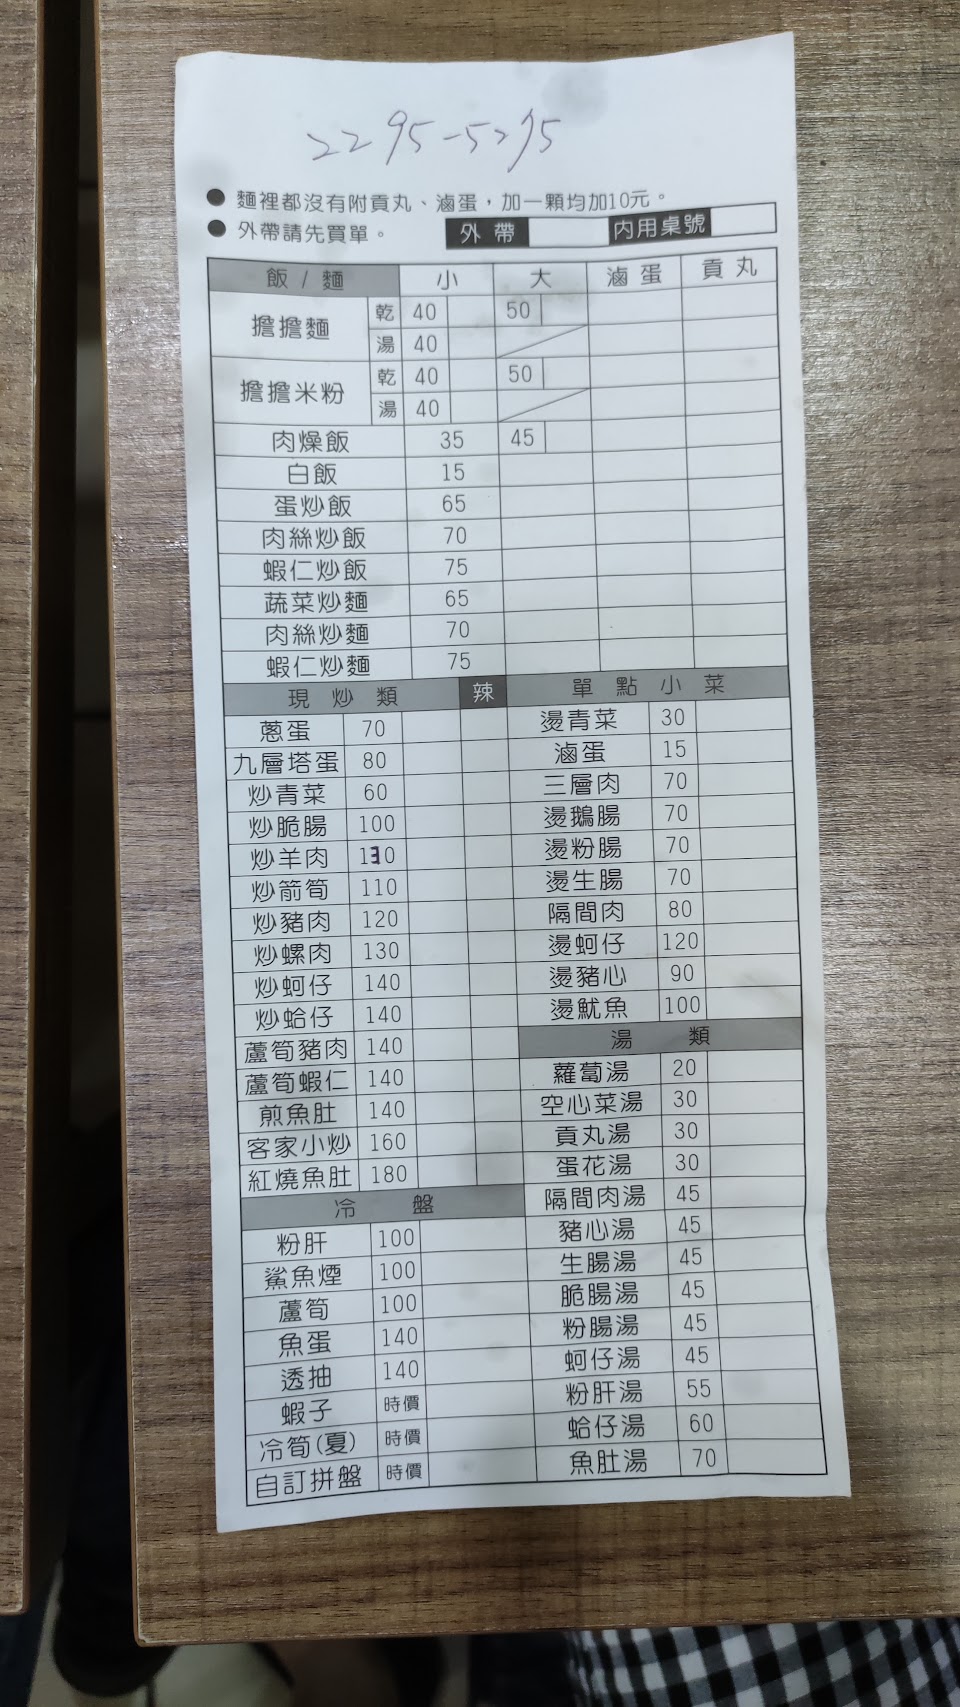 2295-5275
● 麵裡都沒有附貢丸、滷蛋，加一顆均加10元。
● 外帶請先買單。 外帶 內用桌號
飯/麵 小 大 滷蛋 貢丸
擔擔麵 乾 40 50
湯 40
擔擔米粉 乾 40 50
湯 40
肉燥飯 35 45
白飯 15
蛋炒飯 65
肉絲炒飯 70
蝦仁炒飯 75
蔬菜炒麵 65
肉絲炒麵 70
蝦仁炒麵 75
現炒類 辣
蔥蛋 70
九層塔蛋 80
炒青菜 60
炒脆腸 100
炒羊肉 130
炒箭筍 110
炒豬肉 120
炒螺肉 130
炒蚵仔 140
炒蛤仔 140
蘆筍豬肉 140
蘆筍蝦仁 140
煎魚肚 140
客家小炒 160
紅燒魚肚 180
冷盤
粉肝 100
鯊魚煙 100
蘆筍 100
魚蛋 140
透抽 140
蝦子 時價
冷筍(夏) 時價
自訂拼盤 時價
單點小菜
燙青菜 30
滷蛋 15
三層肉 70
燙鵝腸 70
燙粉腸 70
燙生腸 70
隔間肉 80
燙蚵仔 120
燙豬心 90
燙魷魚 100
湯類
蘿蔔湯 20
空心菜湯 30
貢丸湯 30
蛋花湯 30
隔間肉湯 45
豬心湯 45
生腸湯 45
脆腸湯 45
粉腸湯 45
蚵仔湯 45
粉肝湯 55
蛤仔湯 60
魚肚湯 70